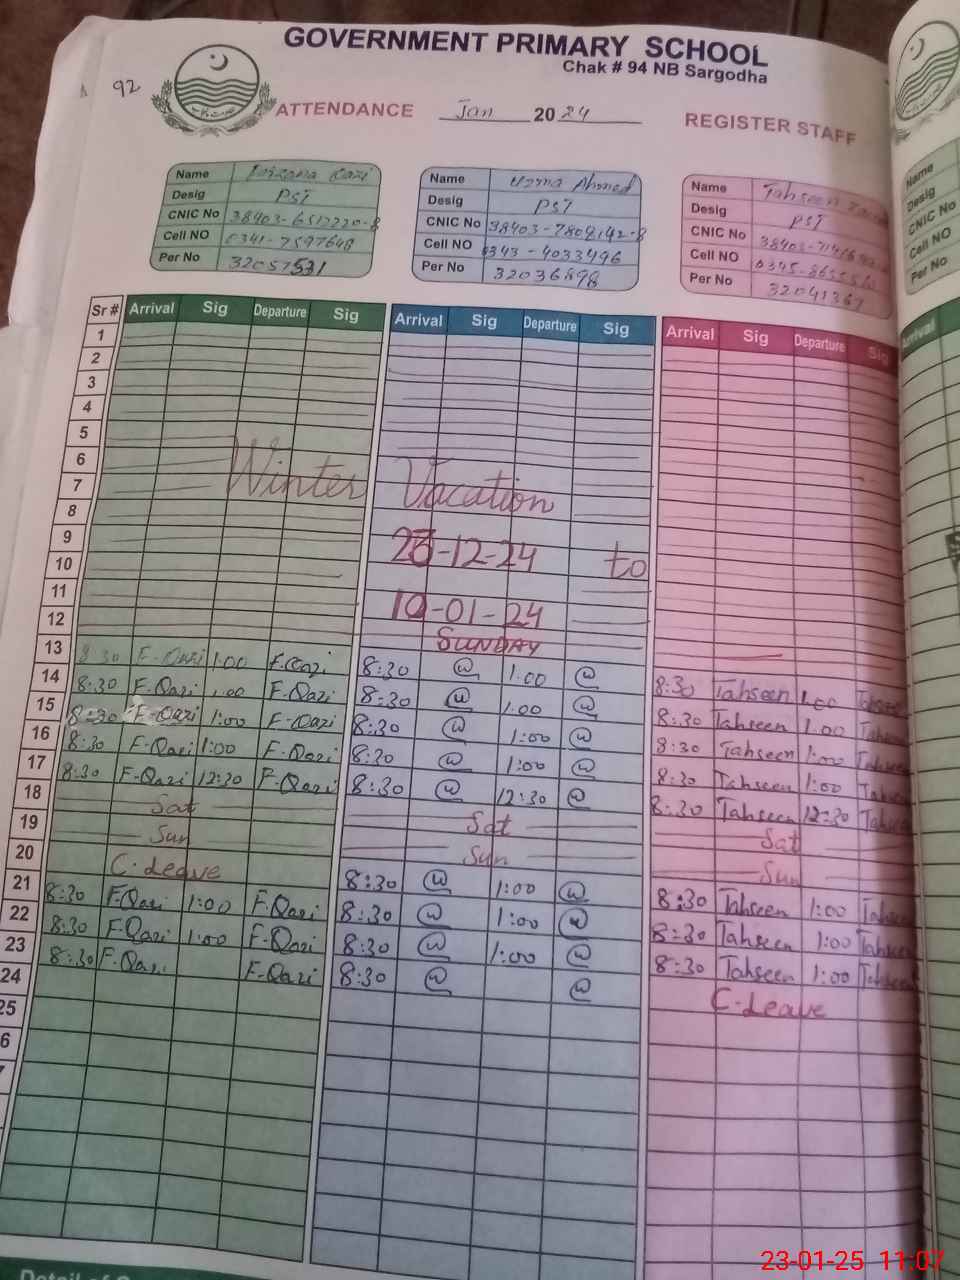 92
GOVERNMENT PRIMARY SCHOOL
Chak # 94 NB Sargodha
ATTENDANCE Jan 2024 REGISTER STAFF
Name Qazi
Desig PST
CNIC No
Cell NO 0341-7597648
Per No 32057531
Name Uzma Ahmed
Desig PST
CNIC No 38403-7809142-8
Cell NO 0343-4033496
Per No 32036898
Name Tahseen
Desig PST
CNIC No
Cell NO
Per No 32041367
Name
Desig
CNIC No
Cell NO
Per No
Sr # Arrival Sig Departure Sig Arrival Sig Departure Sig Arrival Sig Departure Sig Arrival
1
2
3
4
5
6
7 Winter Vacation
8
9 23-12-24 to
10
11 10-01-24
12 SUNDAY
13 8:30 F-Qazi 1:00 F-Qazi 8:30 @ 1:00 @ 8:30 Tahseen 1:00
14 8:30 F-Qazi 1:00 F-Qazi 8:30 @ 1:00 @ 8:30 Tahseen 1:00
15 8:30 F-Qazi 1:00 F-Qazi 8:30 @ 1:00 @ 8:30 Tahseen 1:00
16 8:30 F-Qazi 1:00 F-Qazi 8:30 @ 1:00 @ 8:30 Tahseen 1:00
17 8:30 F-Qazi 12:30 F-Qazi 8:30 @ 12:30 @ 8:30 Tahseen 12:30
18 Sat Sat Sat
19 Sun Sun Sun
20 C-Leave 8:30 @ 1:00 @ 8:30 Tahseen 1:00
21 8:30 F-Qazi 1:00 F-Qazi 8:30 @ 1:00 @ 8:30 Tahseen 1:00
22 8:30 F-Qazi 1:00 F-Qazi 8:30 @ 1:00 @ 8:30 Tahseen 1:00
23 8:30 F-Qazi F-Qazi 8:30 @ @ C-Leave
24
25
6
7
23-01-25 11:07